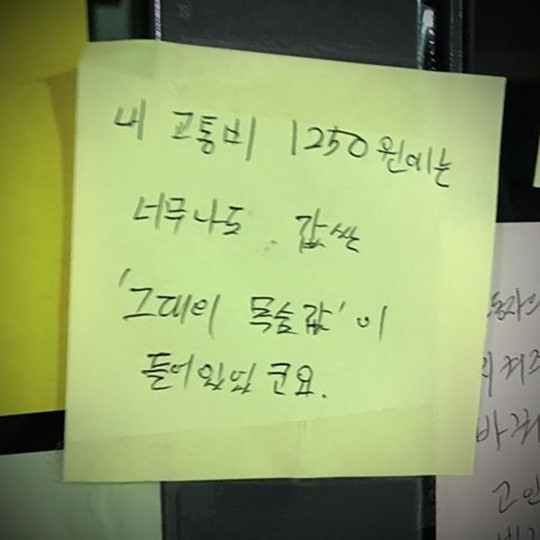 내 교통비 1250원에는
너무나도 값싼
'그대의 목숨값'이
들어있었군요.
바꿔
고인